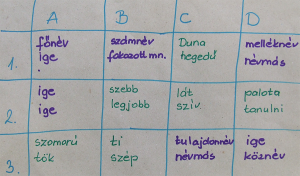 A B C D
1. főnév ige számnév fokozott mn. Duna hegedű melléknév névmás
2. ige ige szebb legjobb lát szív. palota tanulni
3. szomorú tök ti szép tulajdonnév névmás ige köznév